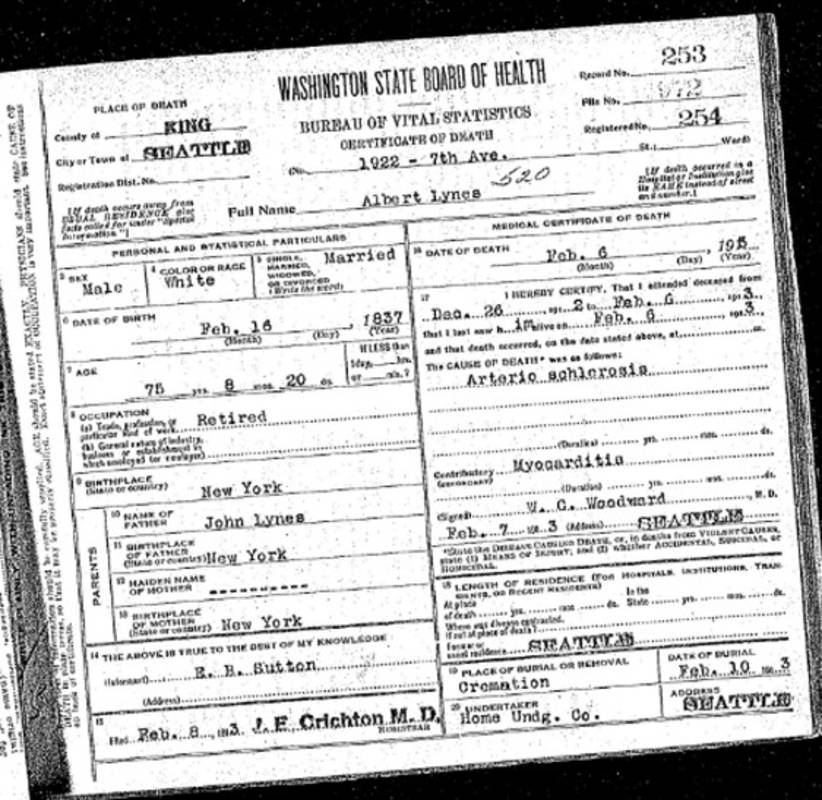 WASHINGTON STATE BOARD OF HEALTH
BUREAU OF VITAL STATISTICS
CERTIFICATE OF DEATH
Record No. 253
File No.
Registered No. 254
PLACE OF DEATH
County of KING
City or Town of SEATTLE
Registration Dist. No.
(No. 1922 - 7th Ave. St.; Ward)
520
[If death occurs away from USUAL RESIDENCE give facts called for under "Special Information"]
Full Name Albert Lynes
[If death occurred in a Hospital or Institution give its NAME instead of street and number.]
PERSONAL AND STATISTICAL PARTICULARS
3 SEX Male
4 COLOR OR RACE White
5 SINGLE, MARRIED, WIDOWED, OR DIVORCED (Write the word) Married
6 DATE OF BIRTH Feb. 16, 1837
(Month) (Day) (Year)
7 AGE 75 yrs. 8 mos. 20 ds.
If LESS than 1 day, hrs. or min.?
8 OCCUPATION
(a) Trade, profession, or particular kind of work Retired
(b) General nature of industry, business or establishment in which employed (or employer)
9 BIRTHPLACE (State or country) New York
PARENTS
10 NAME OF FATHER John Lynes
11 BIRTHPLACE OF FATHER (State or country) New York
12 MAIDEN NAME OF MOTHER ----------
13 BIRTHPLACE OF MOTHER (State or country) New York
14 THE ABOVE IS TRUE TO THE BEST OF MY KNOWLEDGE
(Informant) E. B. Sutton
(Address)
15 Filed Feb. 8, 191 3 J. E. Crichton M. D.
REGISTRAR
MEDICAL CERTIFICATE OF DEATH
16 DATE OF DEATH Feb. 6, 191
(Month) (Day) (Year)
17 I HEREBY CERTIFY, That I attended deceased from
Dec. 26 191 2 to Feb. 6 191 3,
that I last saw h im alive on Feb. 6 191 3,
and that death occurred, on the date stated above, at m.
The CAUSE OF DEATH* was as follows:
Arterio sohlerosis
(Duration) yrs. mos. ds.
Contributory (SECONDARY) Myocarditis
(Duration) yrs. mos. ds.
(Signed) W. C. Woodward, M. D.
Feb. 7 191 3 (Address) SEATTLE
*State the DISEASE CAUSING DEATH, or, in deaths from VIOLENT CAUSES, state (1) MEANS OF INJURY; and (2) whether ACCIDENTAL, SUICIDAL, or HOMICIDAL.
18 LENGTH OF RESIDENCE (FOR HOSPITALS, INSTITUTIONS, TRANSIENTS, OR RECENT RESIDENTS)
At place of death yrs. mos. ds. In the State yrs. mos. ds.
Where was disease contracted, if not at place of death?
Former or usual residence SEATTLE
19 PLACE OF BURIAL OR REMOVAL Cremation
DATE OF BURIAL Feb. 10 191 3
20 UNDERTAKER Home Undg. Co.
ADDRESS SEATTLE